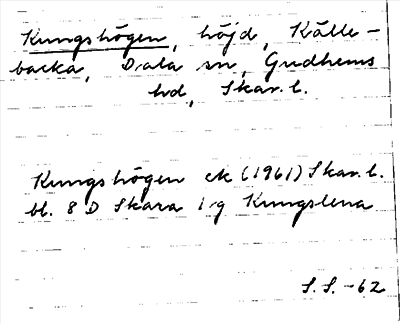 Kungshögen, höjd, Källe-
backa, Dala sn, Gudhems
hd, Skar. l.
Kungshögen ek (1961) Skar. l.
bl. 8 D Skara i-g Kungslena
S.S. -62